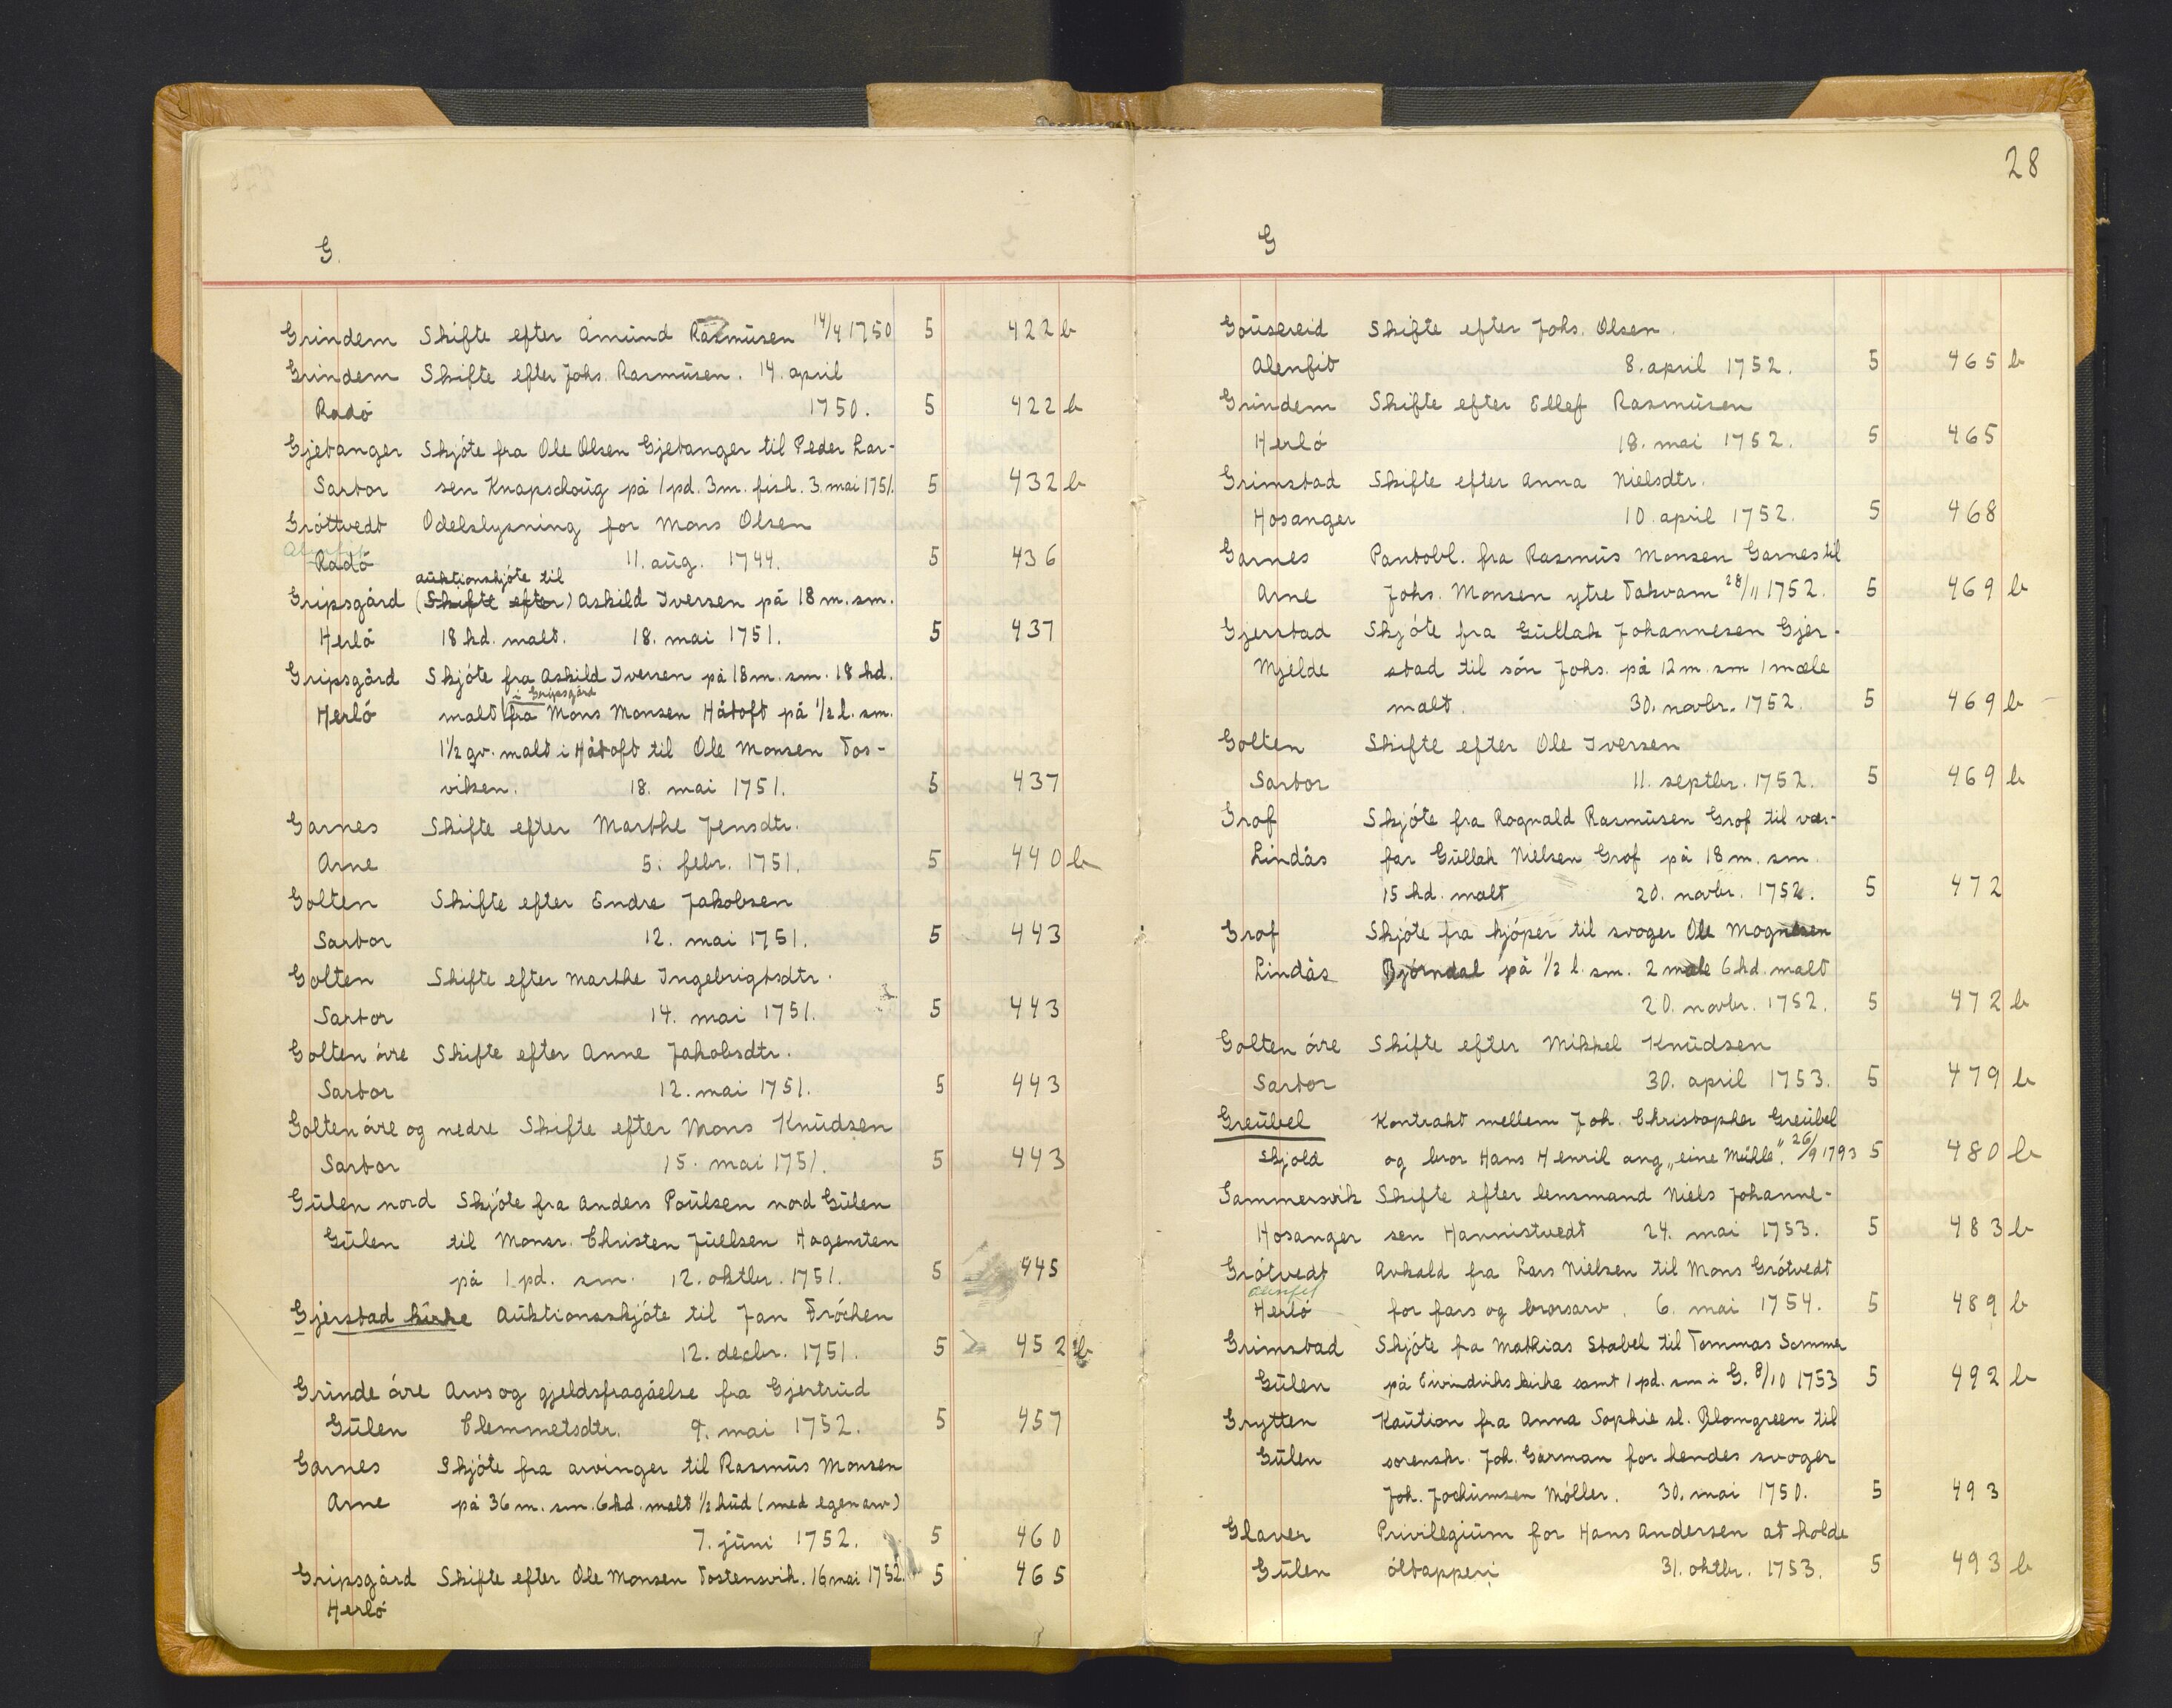 G.
Grindem Skifte efter Amund Rasmüsen 14/4 1750 5 422 b
Grindem Skifte efter Johs. Rasmüsen. 14. april
Radó 1750. 5 422 b
Gjetanger Skjóte fra Ole Olsen Gjetanger til Peder Lar-
Sartor sen Knapschoüg på 1 pd. 3 m. fisk. 3. mai 1751. 5 432 b
Gróttvedt Odelslysning for Mons Olsen
Alenfit
Radó 11. aüg. 1744. 5 436
aüktionskjóte til
Gripsgård (Skifte efter) Askild Iversen på 18 m. sm.
Herló 18 kd. malt. 18. mai 1751. 5 437
Gripsgård Skjóte fra Askild Iversen på 18 m. sm. 18 kd.
i Gripsgård
Herló malt fra Mons Monsen Håtoft på ½ l. sm.
1½ qv. malt i Håtoft til Ole Monsen Tos-
viksen. 18. mai 1751. 5 437
Garnes Skifte efter Marthe Jensdtr.
Arne 5. febr. 1751. 5 440 b
Golten Skifte efter Endre Jakobsen
Sartor 12. mai 1751. 5 443
Golten Skifte efter Marthe Ingebrigtsdtr.
Sartor 14. mai 1751. 5 443
Golten óvre Skifte efter Anne Jakobsdtr.
Sartor 12. mai 1751. 5 443
Golten óvre og nedre Skifte efter Mons Knüdsen
Sartor 15. mai 1751. 5 443
Gülen nord Skjóte fra Anders Poülsen nord Gülen
Gülen til Monsr. Christen Jüellsen Hagensten
på 1 pd. sm. 12. oktbr. 1751. 5 445
Gjerstad kirke Aüktionsskjóte til Jan Fróchen
12. decbr. 1751. 5 452 b
Grinde óvre Arvs og gjeldsfragåelse fra Gjertrüd
Gülen Clemmetsdtr. 9. mai 1752. 5 457
Garnes Skjóte fra arvinger til Rasmüs Monsen
Arne på 36 m. sm. 6 kd. malt ½ hüd (med egen arv)
7. jüni 1752. 5 460
Gripsgård Skifte efter Ole Monsen Tostensvik. 16 mai 1752. 5 465
Herló
28
G
Goüsereid Skifte efter Johs. Olsen.
Alenfit 8. april 1752. 5 465 b
Grindem Skifte efter Ellef Rasmüsen
Herló 18. mai 1752. 5 465
Grimstad Skifte efter Anna Nielsdtr.
Hosanger 10. april 1752. 5 468
Garnes Pantobl. fra Rasmüs Monsen Garnes til
Arne Johs. Monsen ytre Takvam 28/11 1752. 5 469 b
Gjerstad Skjóte fra Güllak Johannesen Gjer-
Mjelde stad til són Johs. på 12 m. sm 1 mæle
malt. 30. novbr. 1752. 5 469 b
Golten Skifte efter Ole Iversen
Sartor 11. septbr. 1752. 5 469 b
Grof Skjóte fra Rognald Rasmüsen Grof til vær-
Lindås far Güllak Nielsen Grof på 18 m. sm.
15 kd. malt 20. novbr. 1752. 5 472
Grof Skjóte fra kjóper til svoger Ole Mognesen
Lindås Bjórndal på ½ l. sm. 2 mæle 6 kd. malt
20. novbr. 1752. 5 472 b
Golten óvre Skifte efter Mikkel Knüdsen
Sartor 30. april 1753. 5 479 b
Greübel Kontrakt mellem Joh. Christopher Greübel
Skjold og bror Hans Henril ang „eine Mühle". 26/9 1793 5 480 b
Gammersvik Skifte efter lensmand Niels Johanne-
Hosanger sen Hannistvedt 24. mai 1753. 5 483 b
Grótvedt Avkald fra Lars Nielsen til Mons Grótvedt
Alenfit
Herló for fars og brorsarv. 6. mai 1754. 5 489 b
Grimstad Skjóte fra Mathias Stabel til Tommas Sommer
Gülen på Eivindviks kirke samt 1 pd. sm i G. 8/10 1753 5 492 b
Grytten Kaütion fra Anna Sophie sl. Blomgreen til
Gülen sorenskr. Joh. Garman for hendes svoger
Joh. Jochümsen Móller. 30. mai 1750. 5 493
Glaver Privilegiüm for Hans Andersen at holde
Gülen óltapperi 31. oktbr. 1753. 5 493 b